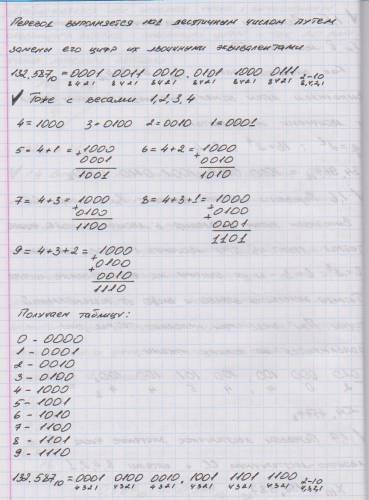 Перевод выполняется над десятичным числом путем
замены его цифр их двоичными эквивалентами
132.587₁₀ = 0001 0011 0010. 0101 1000 0111 2-10
8421 8421 8421 8421 8421 8421 8,4,2,1
✓ Тоже с весами 1,2,3,4
4=1000 3=0100 2=0010 1=0001
5=4+1= +1000 6=4+2= +1000
0001 0010
1001 1010
7=4+3= +1000 8=4+3+1= +1000
0100 +0100
1100 0001
1101
9=4+3+2= +1000
+0100
0010
1110
Получаем таблицу:
0 - 0000
1 - 0001
2 - 0010
3 - 0100
4 - 1000
5 - 1001
6 - 1010
7 - 1100
8 - 1101
9 - 1110
132.587₁₀ = 0001 0100 0010. 1001 1101 1100 2-10
4321 4321 4321 4321 4321 4321 4,3,2,1